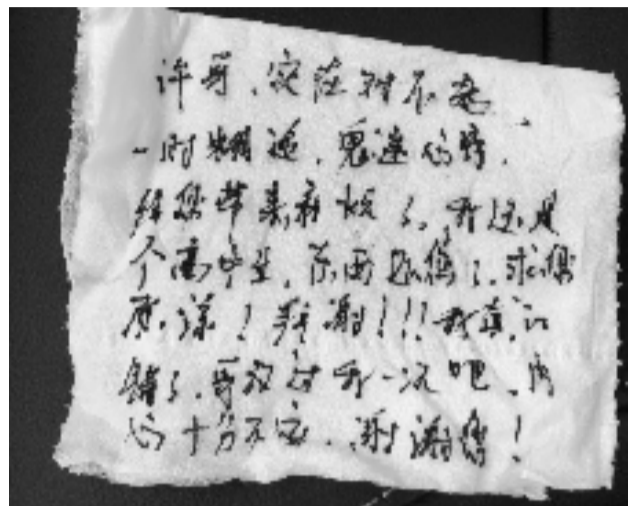 许哥，实在对不起，
一时糊涂，鬼迷心窍，
给您带来麻烦了，我还是
个高中生，东西还您了，求您
原谅！拜谢！！！我真认
错了，哥放过我一次吧，内
心十分不安，谢谢您！